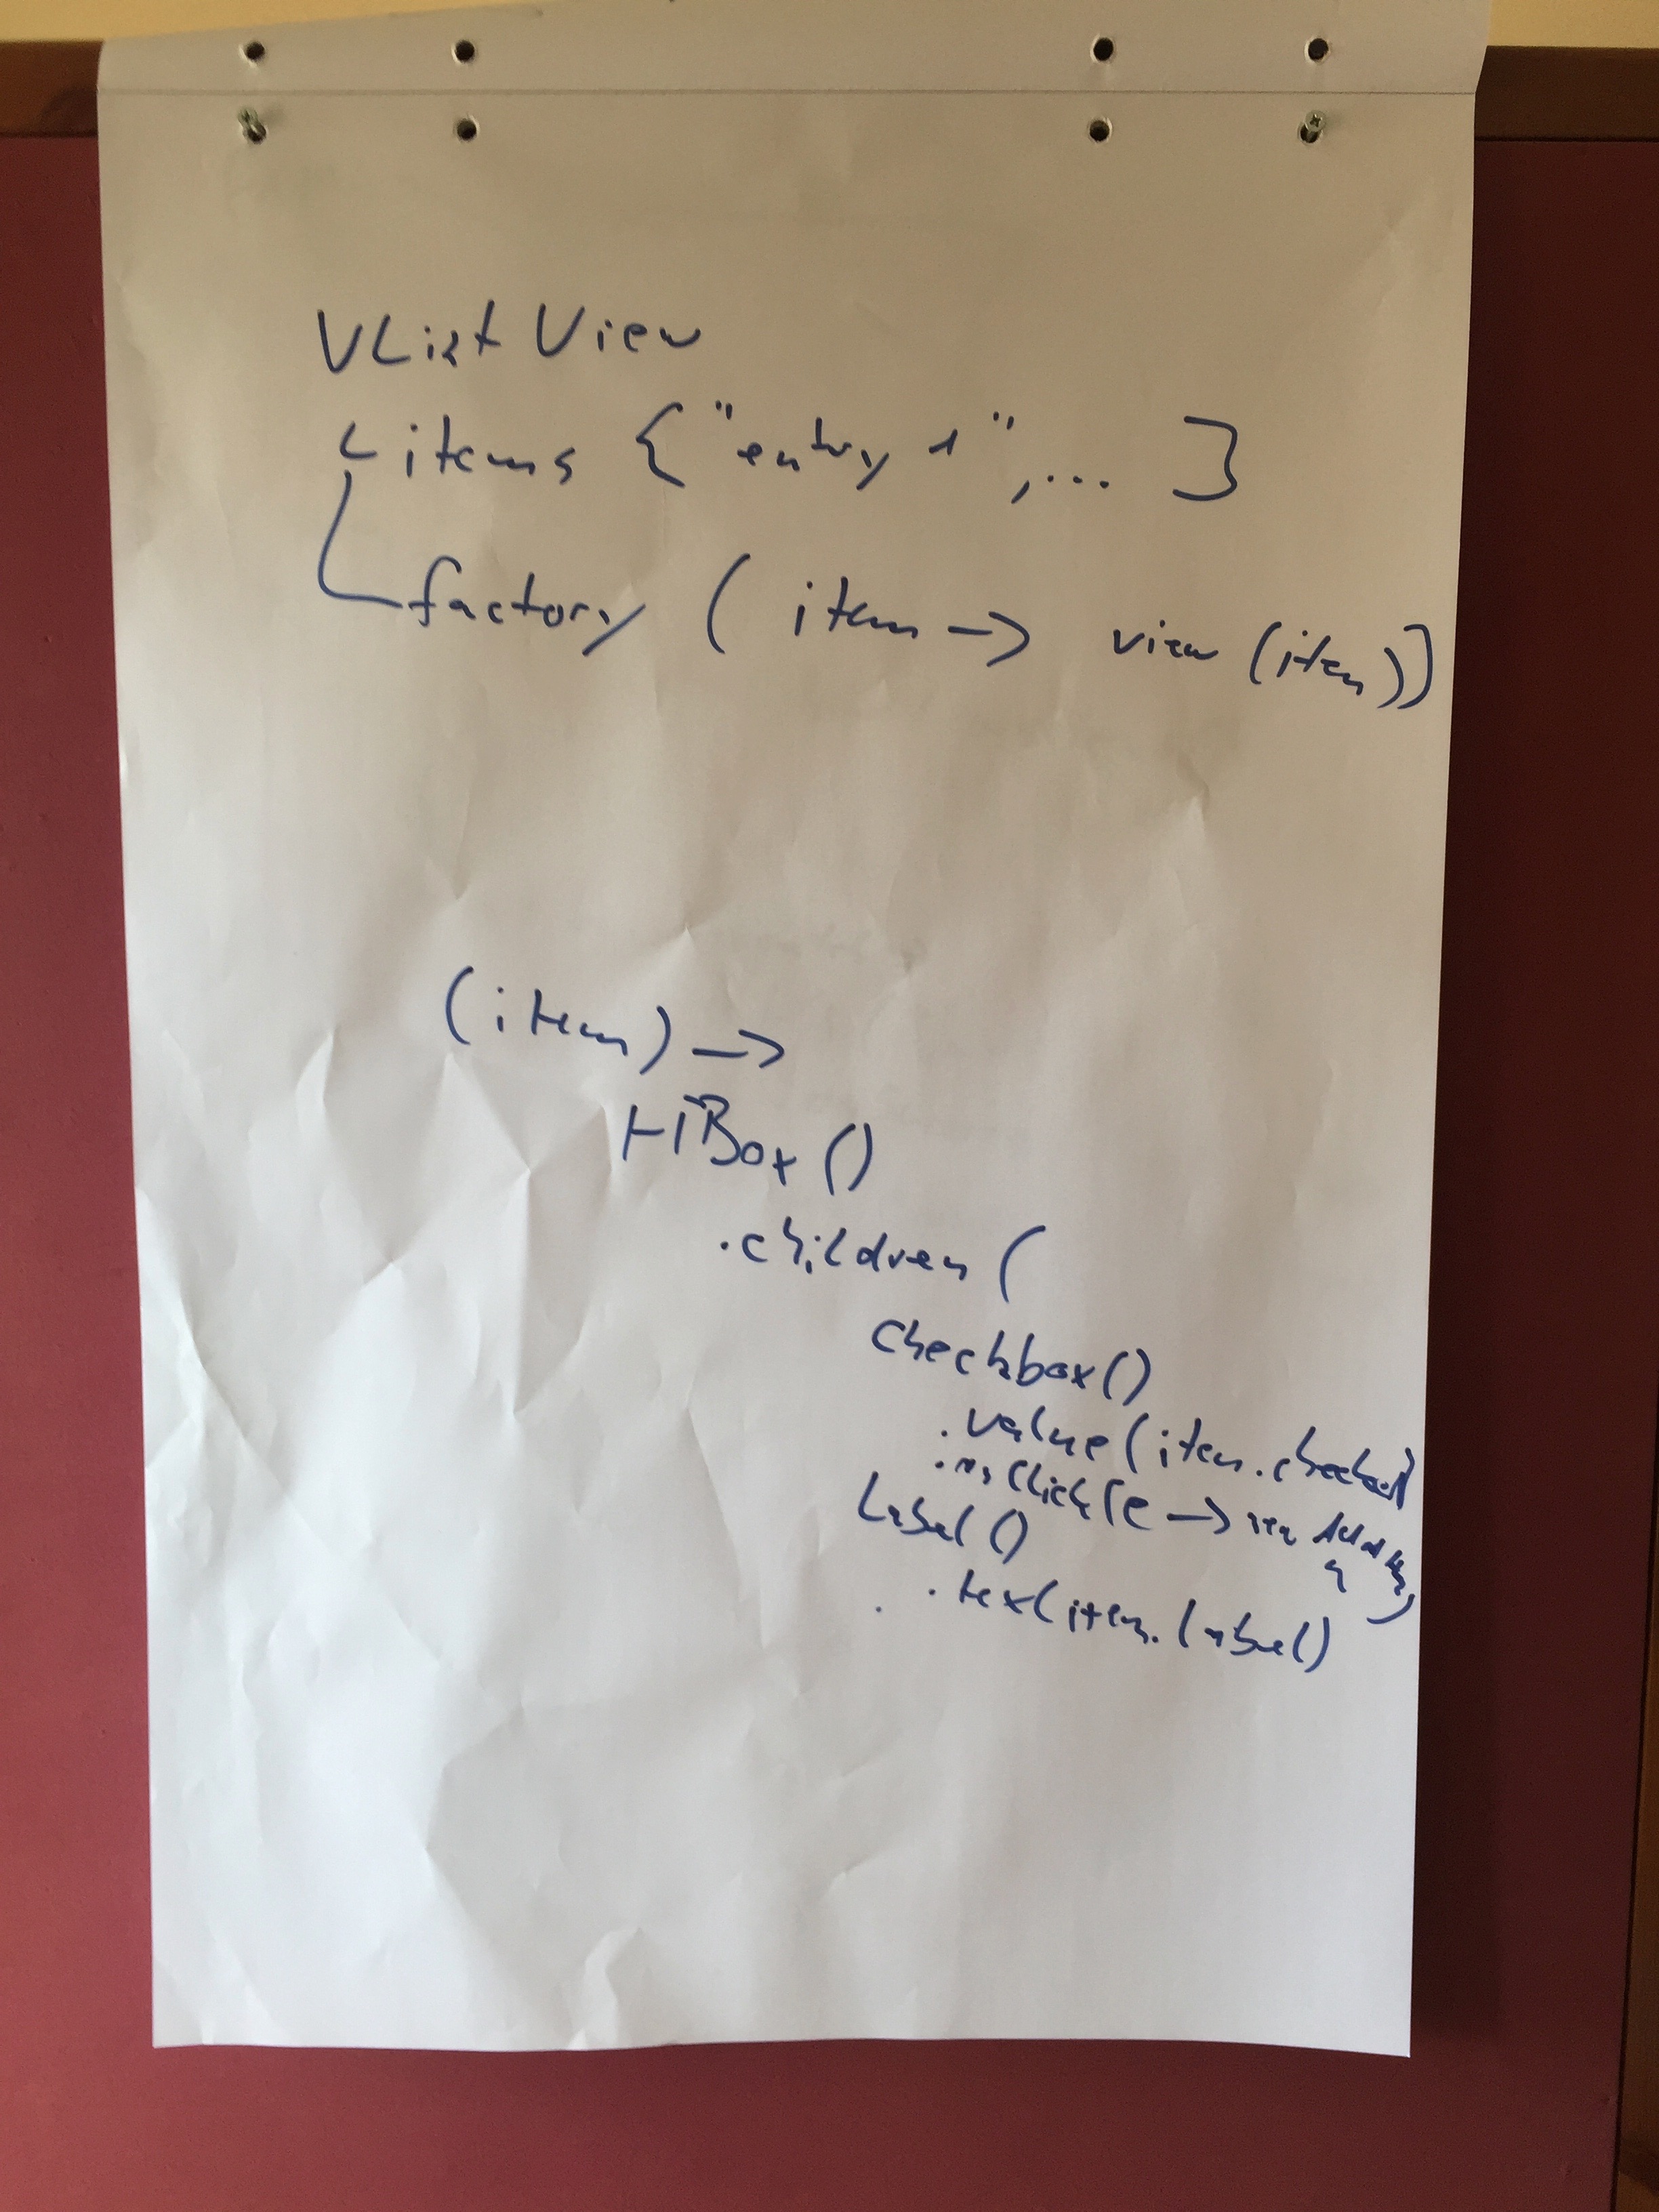 VListView
items { "entry 1", ... }
factory ( item -> view (item))
(item) ->
HBox ()
.children (
Checkbox()
.value (item.checked)
.onClick(e ->
Label ()
.text(item.label)